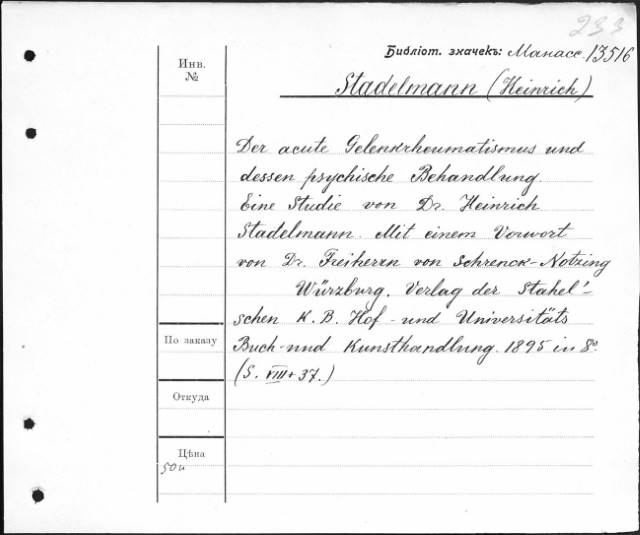 233
Библіот. значекъ: Манасс. 13516
Инв.
№
Stadelmann (Heinrich)
Der acute Gelenkrheumatismus und
dessen psychische Behandlung
Eine Studie von Dr. Heinrich
Stadelmann. Mit einem Vorwort
von Dr. Freiherrn von Schrenck-Notzing
Würzburg. Verlag der Stahel'-
schen K. B. Hof- und Universitäts
Buch- und Kunsthandlung. 1895 in 8º
(S. VIII+37.)
По заказу
Откуда
Цѣна